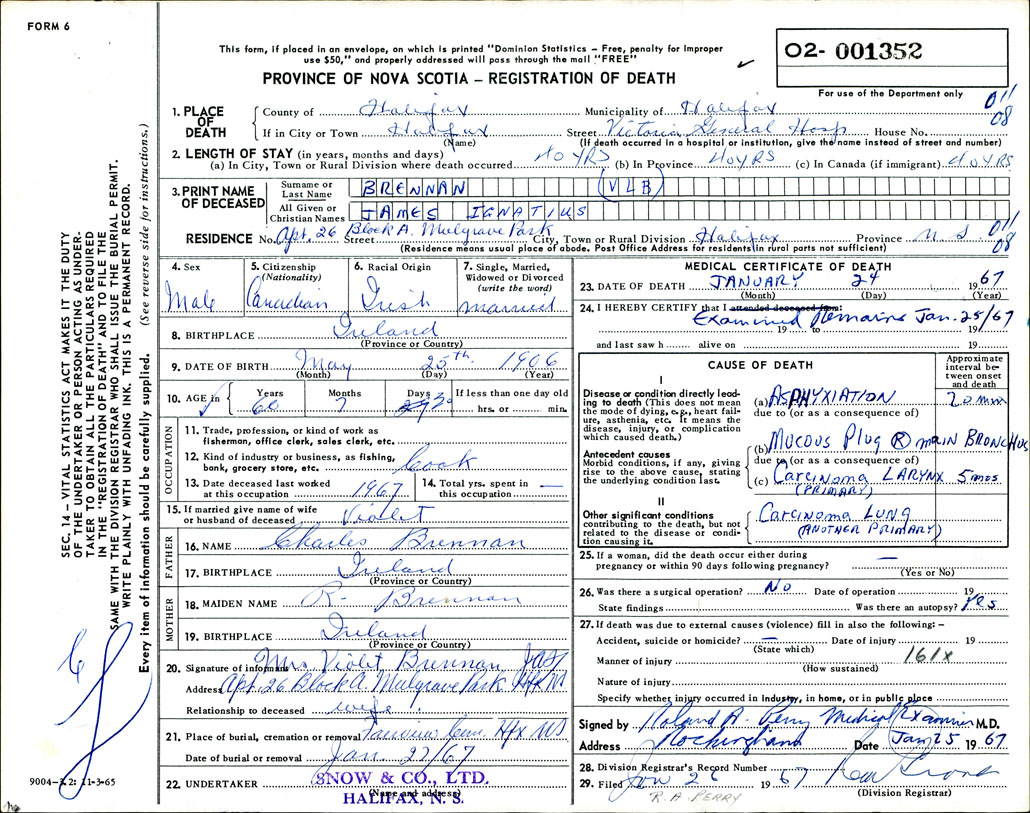 FORM 6
This form, if placed in an envelope, on which is printed "Dominion Statistics – Free, penalty for improper
use $50," and properly addressed will pass through the mail "FREE"
PROVINCE OF NOVA SCOTIA – REGISTRATION OF DEATH
02- 001352
For use of the Department only
011
08
1. PLACE OF DEATH
County of Halifax Municipality of Halifax
If in City or Town Halifax Street Victoria General Hosp House No.
(Name) (If death occurred in a hospital or institution, give the name instead of street and number)
2. LENGTH OF STAY (in years, months and days)
(a) In City, Town or Rural Division where death occurred 40 YRS (b) In Province 40 YRS (c) In Canada (if immigrant) 40 YRS
3. PRINT NAME OF DECEASED
Surname or Last Name BRENNAN (VLB)
All Given or Christian Names JAMES IGNATIUS
RESIDENCE No. Apt. 26 Street Block A. Mulgrave Park City, Town or Rural Division Halifax Province N S
011
08
(Residence means usual place of abode. Post Office Address for residents in rural parts not sufficient)
4. Sex
Male
5. Citizenship
(Nationality)
Canadian
6. Racial Origin
Irish
7. Single, Married,
Widowed or Divorced
(write the word)
married
8. BIRTHPLACE Ireland
(Province or Country)
9. DATE OF BIRTH May 25th 1906
(Month) (Day) (Year)
10. AGE in
Years Months Days If less than one day old
60 7 hrs. or min.
OCCUPATION
11. Trade, profession, or kind of work as
fisherman, office clerk, sales clerk, etc.
12. Kind of industry or business, as fishing,
bank, grocery store, etc. Cook
13. Date deceased last worked
at this occupation 1967
14. Total yrs. spent in
this occupation —
15. If married give name of wife
or husband of deceased Violet
FATHER
16. NAME Charles Brennan
17. BIRTHPLACE Ireland
(Province or Country)
MOTHER
18. MAIDEN NAME R- Brennan
19. BIRTHPLACE Ireland
(Province or Country)
20. Signature of informant Mrs Violet Brennan
Address Apt. 26 Block A. Mulgrave Park Hfx
Relationship to deceased wife
21. Place of burial, cremation or removal Hfx NS
Date of burial or removal Jan. 27/67
22. UNDERTAKER SNOW & CO., LTD.
(Name and address)
HALIFAX, N. S.
MEDICAL CERTIFICATE OF DEATH
23. DATE OF DEATH JANUARY 24 1967
(Month) (Day) (Year)
24. I HEREBY CERTIFY that I attended deceased from:
Examined Remains Jan. 25/67
19 to 19
and last saw h alive on 19
CAUSE OF DEATH
Approximate
interval be-
tween onset
and death
I
Disease or condition directly lead-
ing to death (This does not mean
the mode of dying, e.g., heart fail-
ure, asthenia, etc. It means the
disease, injury, or complication
which caused death.)
(a) ASPHYXIATION 20 min
due to (or as a consequence of)
(b) MUCOUS Plug R main BRONCHUS
Antecedent causes
Morbid conditions, if any, giving
rise to the above cause, stating
the underlying condition last.
due to (or as a consequence of)
(c) Carcinoma LARYNX 5 mos
(PRIMARY)
II
Other significant conditions
contributing to the death, but not
related to the disease or condi-
tion causing it.
Carcinoma LUNG
(ANOTHER PRIMARY)
25. If a woman, did the death occur either during
pregnancy or within 90 days following pregnancy? —
(Yes or No)
26. Was there a surgical operation? No Date of operation 19
State findings Was there an autopsy? Yes
27. If death was due to external causes (violence) fill in also the following: –
Accident, suicide or homicide? — Date of injury 19
(State which)
Manner of injury 161x
(How sustained)
Nature of injury
Specify whether injury occurred in Industry, in home, or in public place
Signed by Roland A. Perry Medical Examiner M.D.
Address Rockingham Date Jan 25 1967
28. Division Registrar's Record Number
29. Filed Jan 26 1967
(Division Registrar)
R. A. PERRY
SEC. 14 – VITAL STATISTICS ACT MAKES IT THE DUTY
OF THE UNDERTAKER OR PERSON ACTING AS UNDER-
TAKER TO OBTAIN ALL THE PARTICULARS REQUIRED
IN THE "REGISTRATION OF DEATH" AND TO FILE THE
SAME WITH THE DIVISION REGISTRAR WHO SHALL ISSUE THE BURIAL PERMIT.
WRITE PLAINLY WITH UNFADING INK. THIS IS A PERMANENT RECORD.
Every item of information should be carefully supplied. (See reverse side for instructions.)
9004-12: 11-3-65